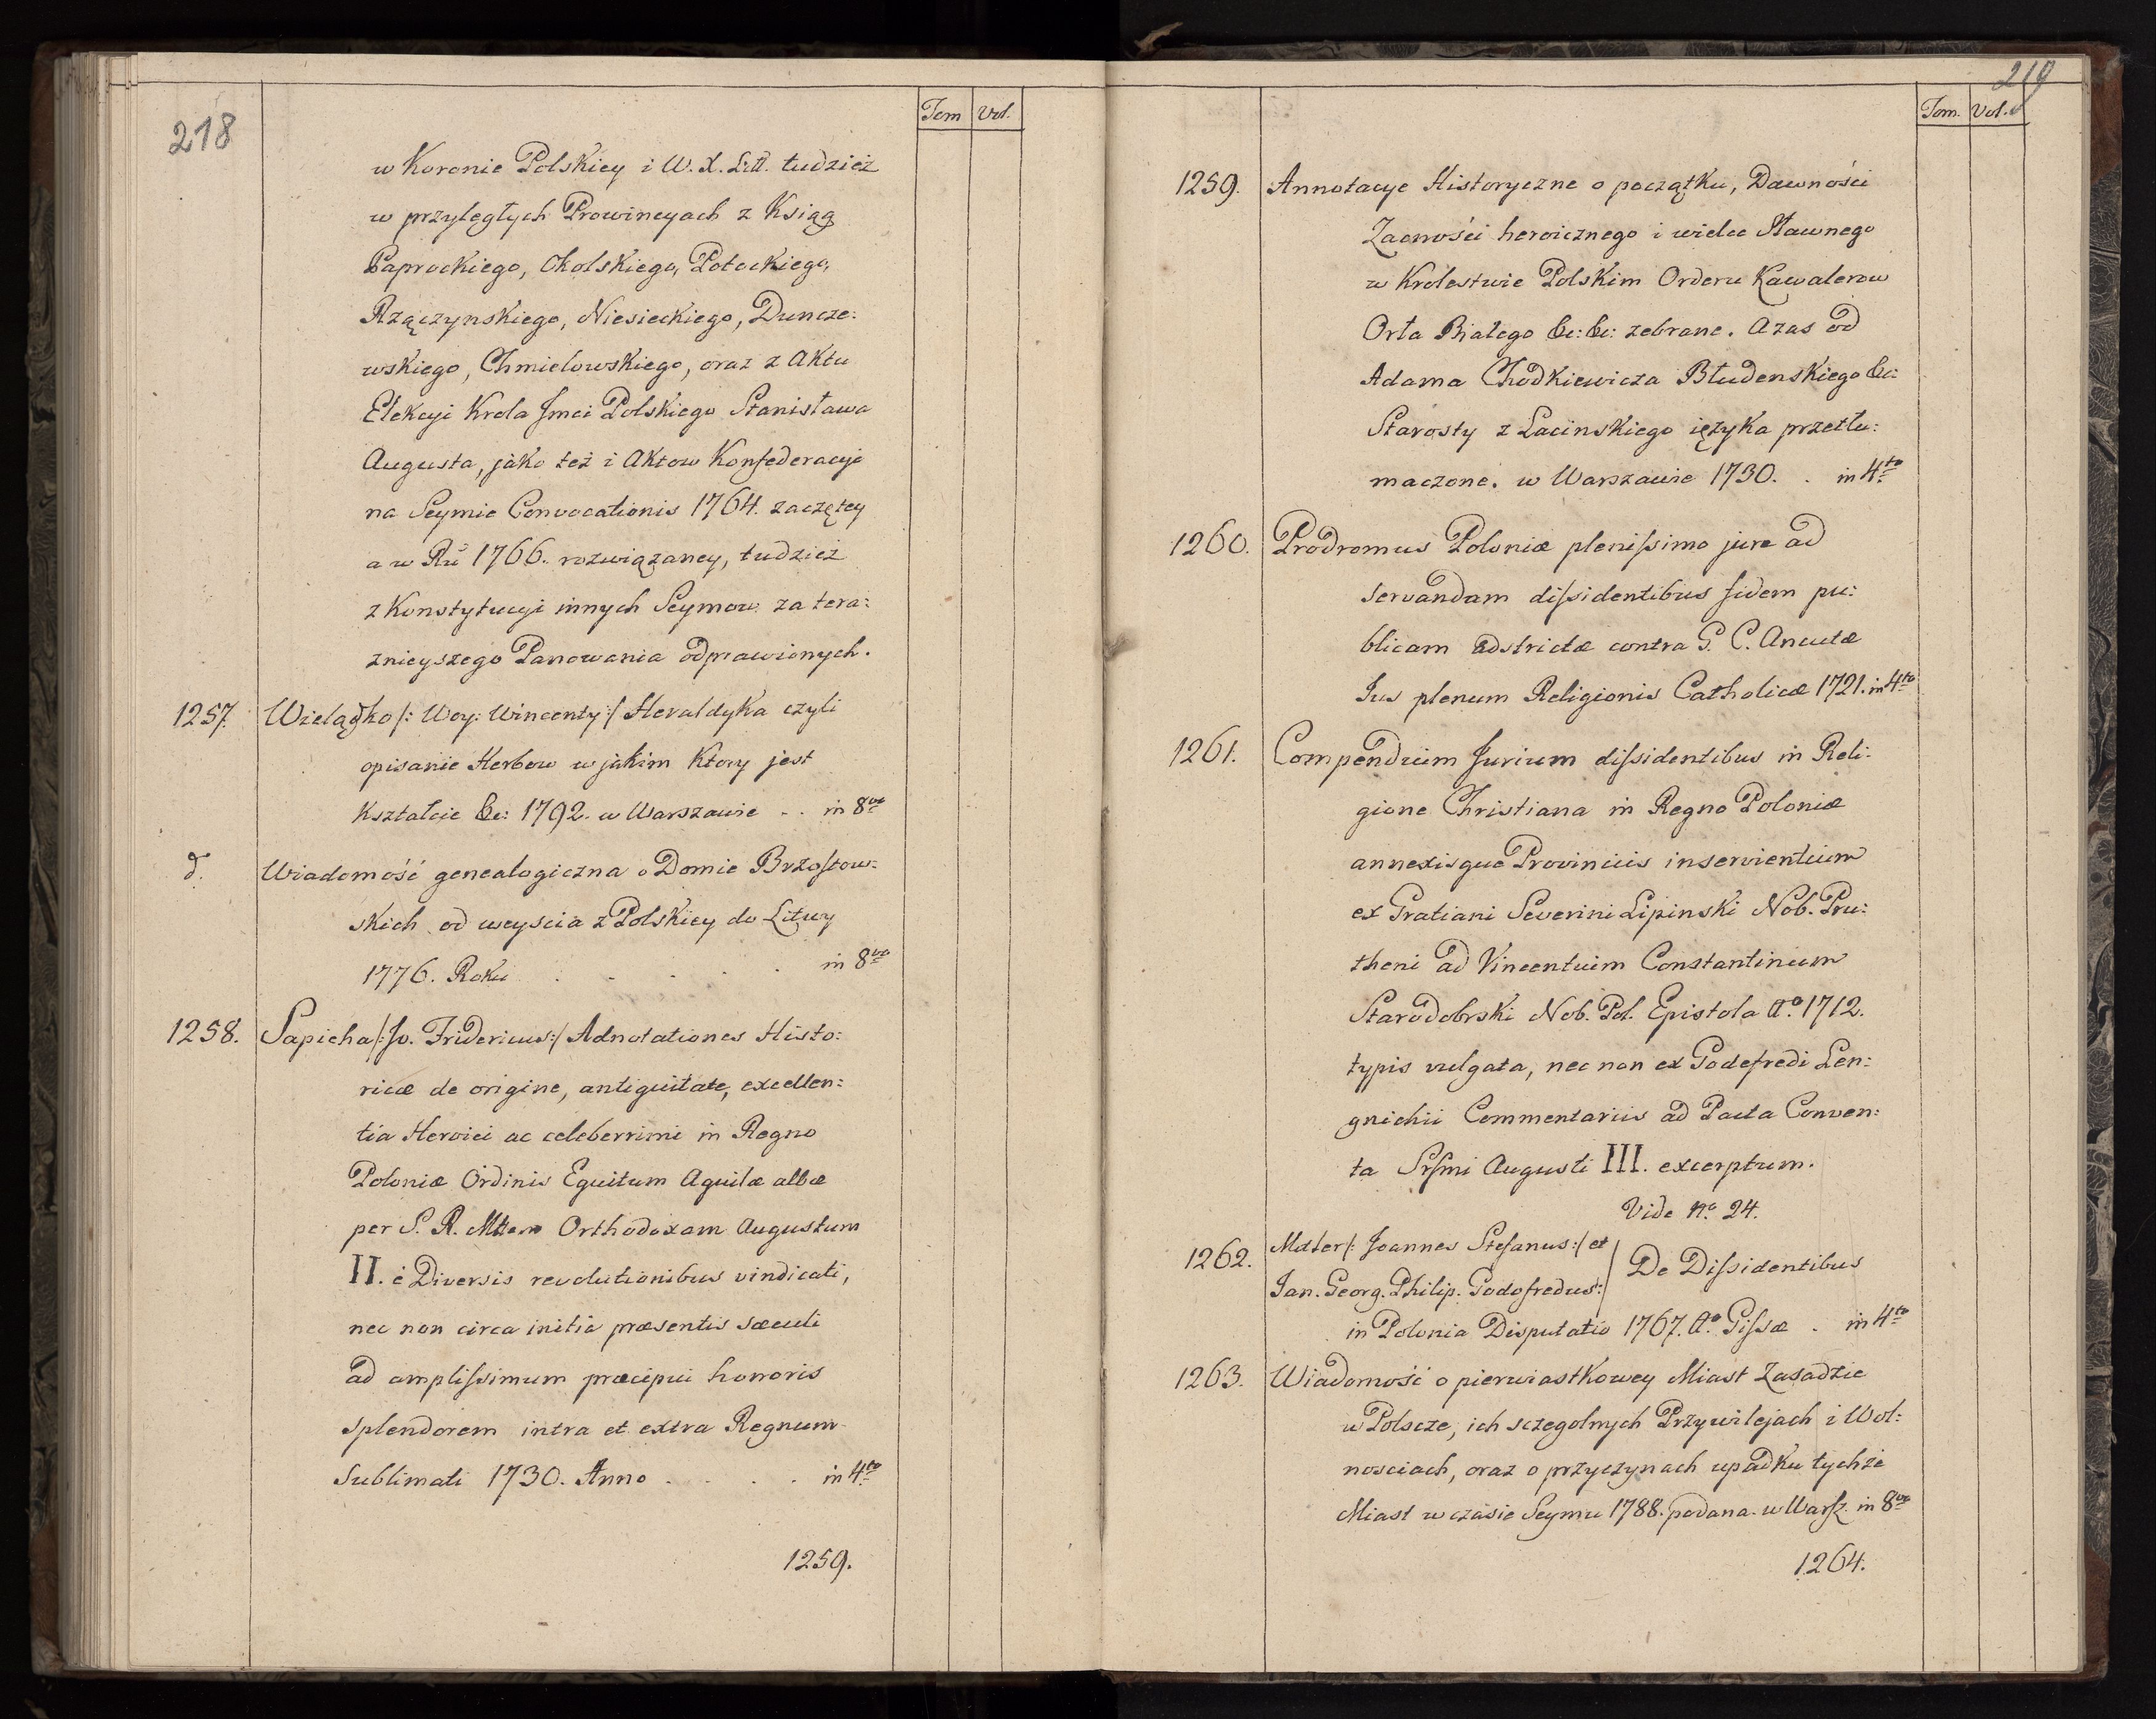 218
Tom Vol.
w Koronie Polskiey i W. X. Litt. tudzież
w przyległych Prowincyach z Ksiąg
Paprockiego, Okolskiego, Potockiego,
Rzączynskiego, Niesieckiego, Duncze:
wskiego, Chmielowskiego, oraz z Aktu
Elekcyi Krola Jmci Polskiego Stanisława
Augusta, jako też i Aktow Konfederacyi
na Seymie Convocationis 1764. zaczętey
a w Ru 1766. rozwiązaney, tudzież
z Konstytucyi innych Seymow za tera:
znieyszego Panowania odprawionych.
1257. Wielądko /: Woy: Wincenty :/ Heraldyka czyli
opisanie Herbow w jakim ktory jest
Kształcie &c: 1792. w Warszawie . . in 8vo
d. Wiadomość genealogiczna o Domie Brzostow:
skich od weyscia z Polskiey do Litwy
1776. Roku . . . . . in 8vo
1258. Sapieha /: Jo. Fridericus :/ Adnotationes Histo:
ricæ de origine, antiquitate, excellen:
tia Heroici ac celeberrimi in Regno
Poloniæ Ordinis Equitum Aquilæ albæ
per S. R. Mttem Orthodoxam Augustum
II. è Diversis revolutionibus vindicati,
nec non circa initia præsentis sæculi
ad amplissimum præcipui honoris
splendorem intra et extra Regnum
Sublimati 1730. Anno . . . . in 4to
1259.
219
Tom. Vol.
1259. Annotacye Historyczne o początku, Dawności
Zacności heroicznego i wielce Sławnego
w Krolestwie Polskim Orderu Kawalerow
Orła Białego &c: &c: zebrane. A zas od
Adama Chodkiewicza Błudenskiego &c:
Starosty z Łacinskiego ięzyka przetłu:
maczone. w Warszawie 1730. . in 4to
1260. Prodromus Poloniæ plenissimo jure ad
servandam dissidentibus fidem pu:
blicam adstrictæ contra G. C. Ancutæ
Jus plenum Religionis Catholicæ 1721. in 4to
1261. Compendium Jurium dissidentibus in Reli:
gione Christiana in Regno Poloniæ
annexisque Provinciis inservientium
ex Gratiani Severini Lipinski Nob. Pru:
theni ad Vincentium Constantinum
Starodobrski Nob. Pol. Epistola Ao. 1712.
typis vulgata, nec non ex Godefredi Len:
gnichii Commentariis ad Pacta Conven:
ta Srsmi Augusti III. excerptum.
Vide No. 24.
1262. /: Joannes Stefanus :/ et
Jan. Georg. Philip. Godofredus:/ De Dissidentibus
in Polonia Disputatio 1767. Ao. Gissæ . in 4to
1263. Wiadomość o pierwiastkowey Miast Zasadzie
w Polscze, ich sczegolnych Przywilejach i Wol:
nosciach, oraz o przyczynach upadku tychże
Miast w czasie Seymu 1788. podana. w Warsz. in 8vo
1264.